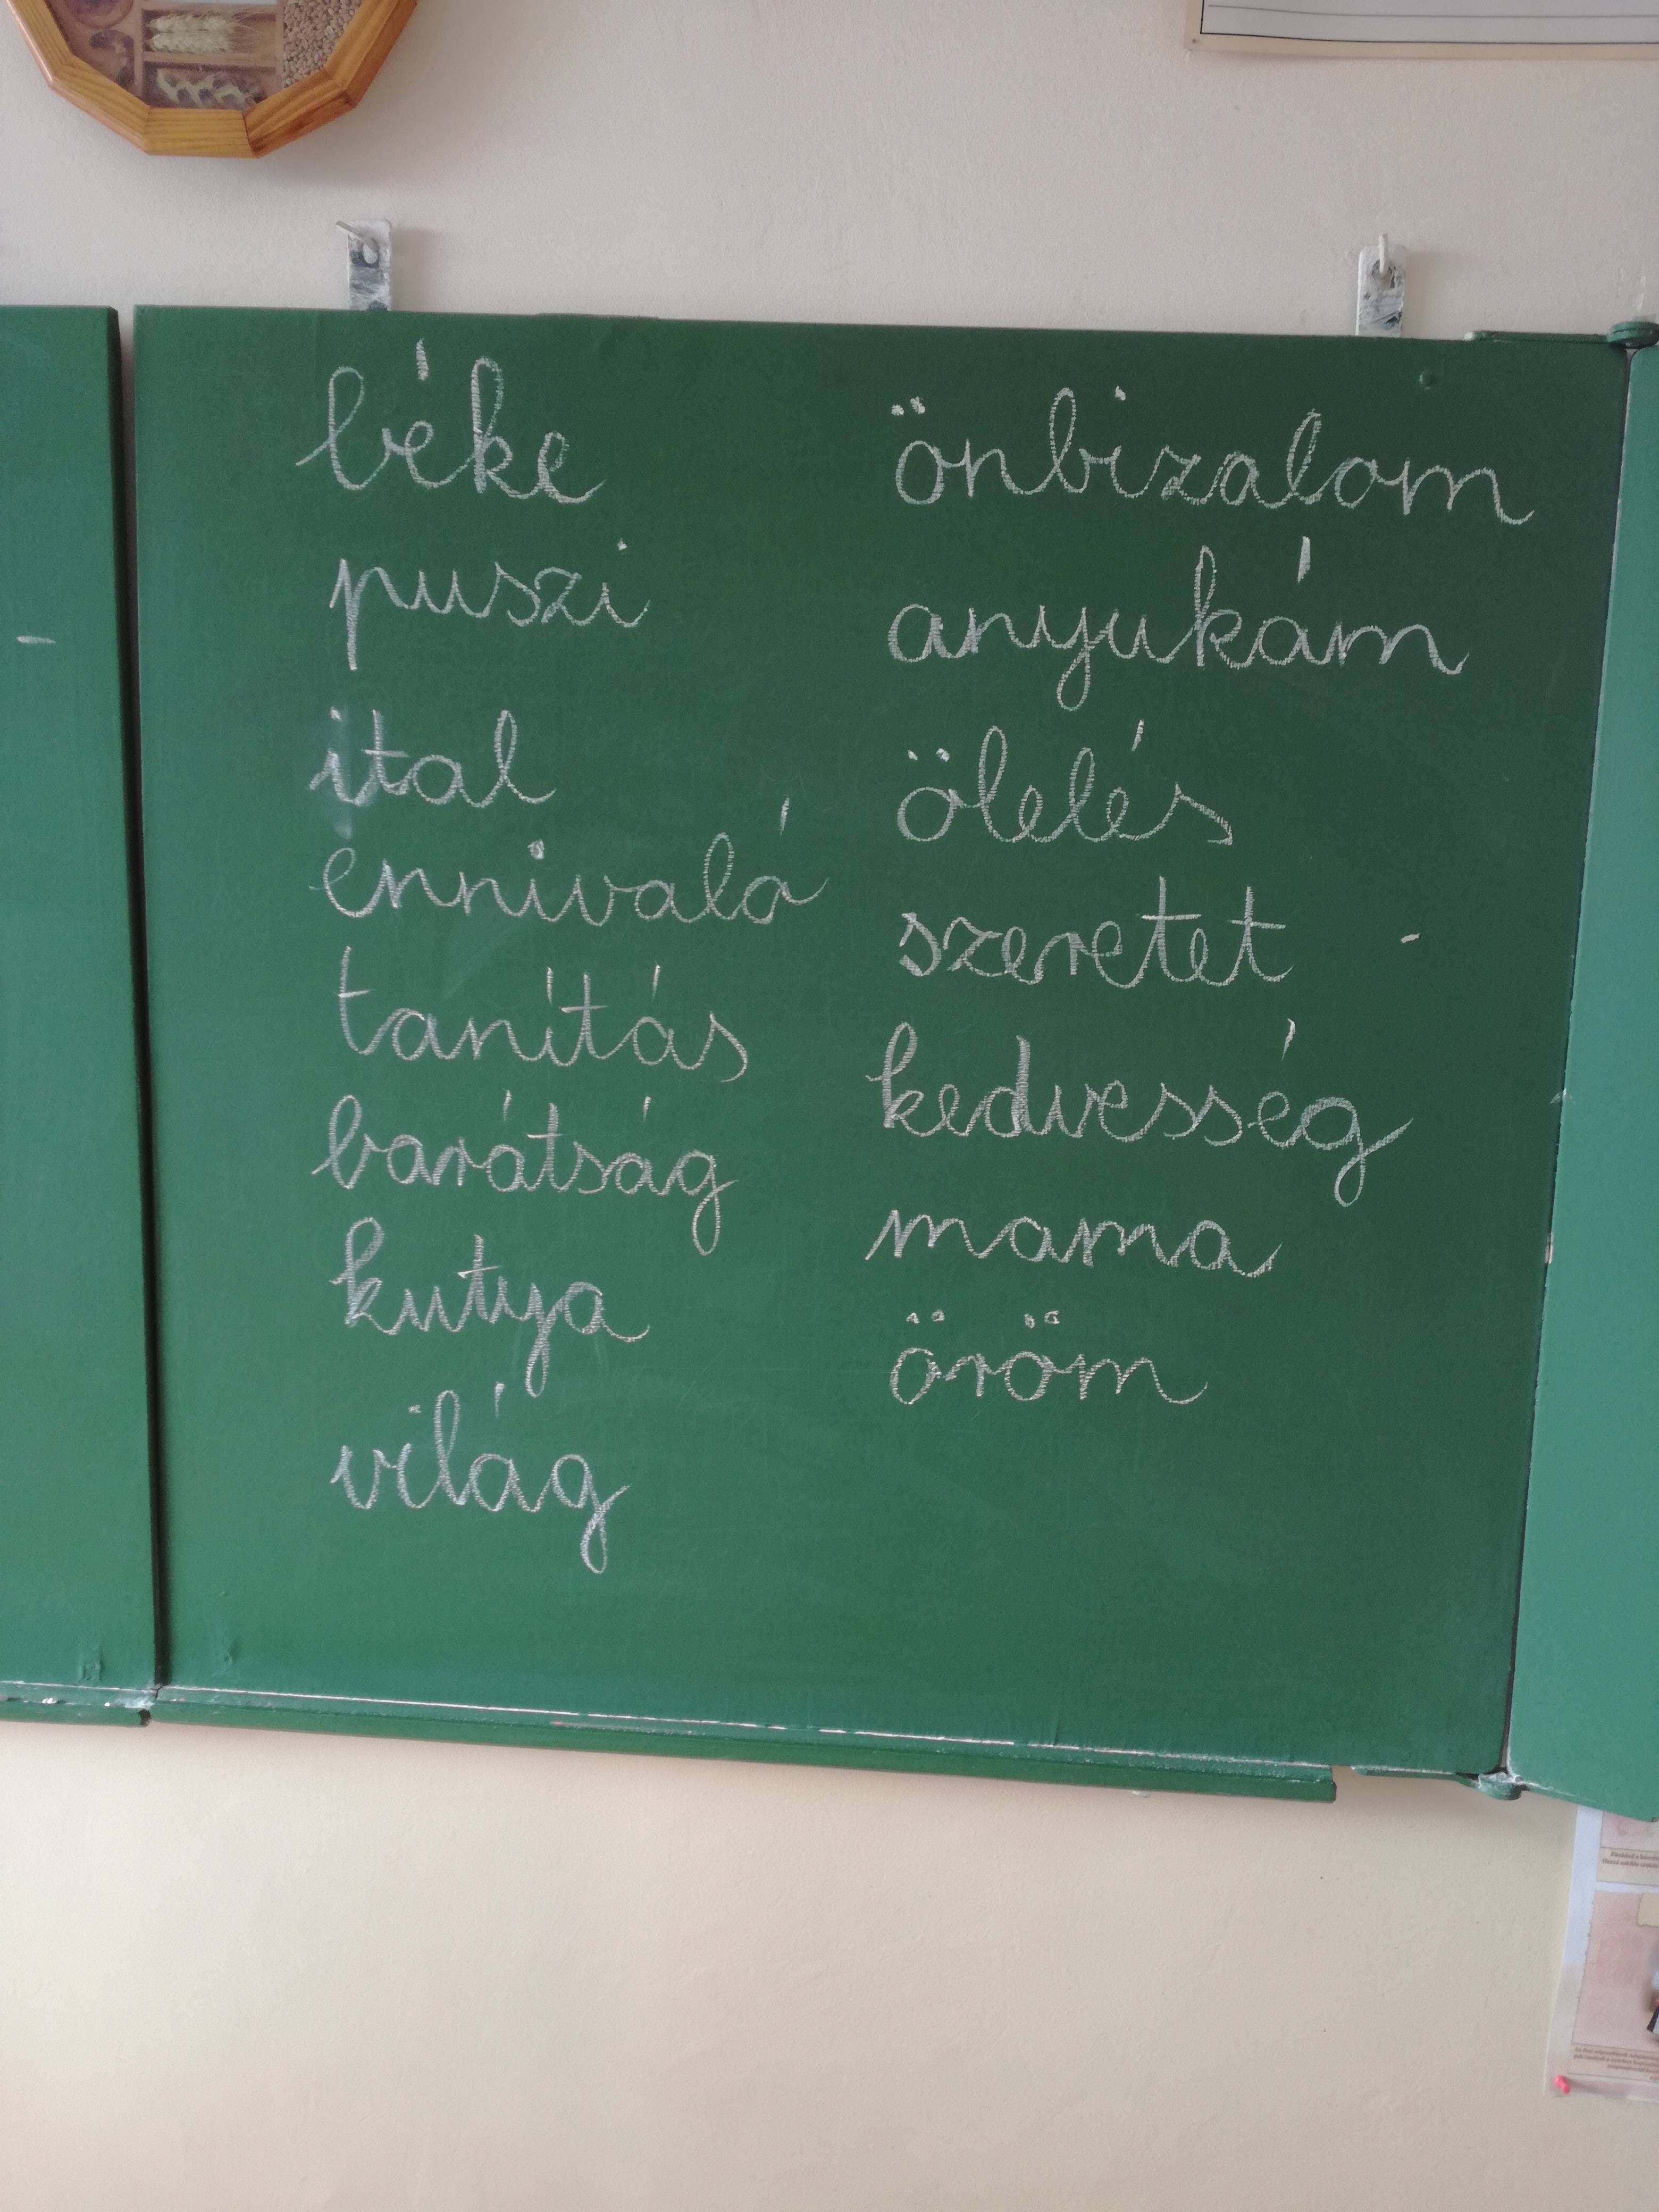 béke
puszi
ital
ennivaló
tanítás
barátság
kutya
világ
önbizalom
anyukám
ölelés
szeretet
kedvesség
mama
öröm